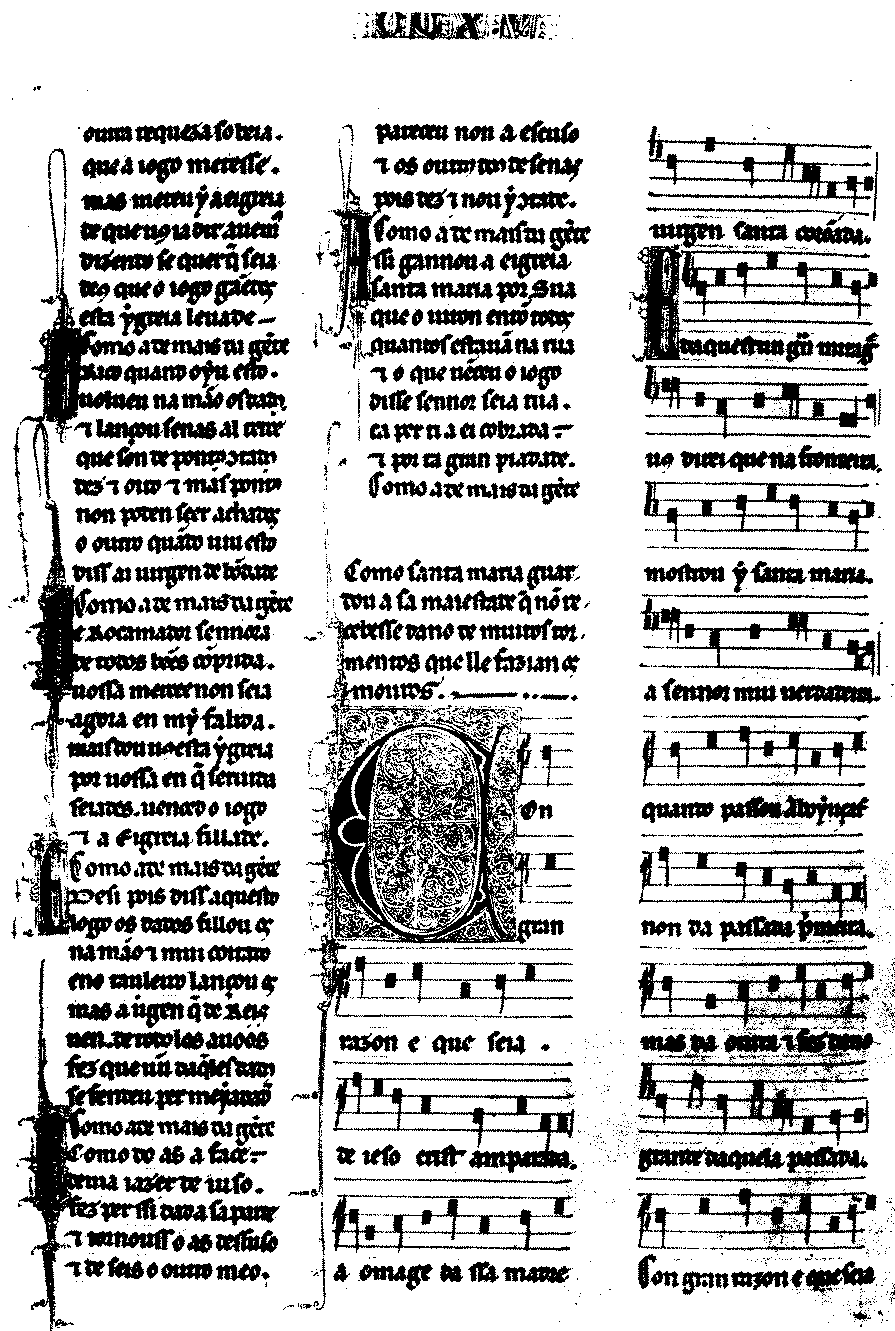 CCXV
outra requeza sobeia.
que a iogo metesse.
mas meteu ẏ a eigreia
de que uos ia dix auem̄
dizendo se quer q̄ seia
des que o iogo gāéts
esta ẏgreia leuade—
Como a de mais da gēte
Rico quando oẏu esto.
uoluen na mão os dads
⁊ lançou senas al tente
que son de ponto contad
dez ⁊ outo ⁊ mas ponto
non poden seer achads
o outro quādo uiu esto
diss ai uirgen de bōdade
Como a de mais da gēte
e Rocamador sennora
de todos bēes cōprida.
uossa merçee non seia
agora en mỹ falida.
mais dou uos esta ẏgreia
por uossa en q̄ seruida
seiades. uencedo o iogo
⁊ a eigreia fillade.
Como a de mais da gēte
Desi pois diss. aquesto
logo os dados fillou &
na mão ⁊ mui coitado
eno tauleiro lançou &
mas a uirgen q̄ de Reis
uen. de todolos auoos
fez que uū daq̄les dads
se fendeu per meyadad
Como a de mais da gēte
Como do as a face—
dema iazer de iuso.
fez per ssi dara sa parte
⁊ tornouss o as dessuso
⁊ de seis o outro meo.
pareceu non a escuso
⁊ os outros dous de senas
pois dez ⁊ nou ẏ contade.
Como a de mais da gēte
ssi gannou a eigreia
santa maria por sua
que o uiron entō todos
quantos estauā na rua
⁊ o que uēceu o iogo
disse sennor seia tua.
ca per ti a ei cobrada—
⁊ por ta gran piadade.
Como a de mais da gēte
Como santa maria guar
dou a sa maiestade q̄ nō re
cebesse dano de muitos tor
mentos que lle fazian &
mouros.
Con
gran
razon e que seia .
de ieso crist amparada.
a omage da ssa madre
uirgen santa corōada.
E daquest un gn̄ miraḡ
uos direi que na fronteira.
mostrou ẏ santa maria.
a sennor mui uerdadeira.
quando passou Aboẏuçaf
non da passada p̄meira.
mas da outra ⁊ fez dano
grande daquela passada.
Con gran razon e que seia